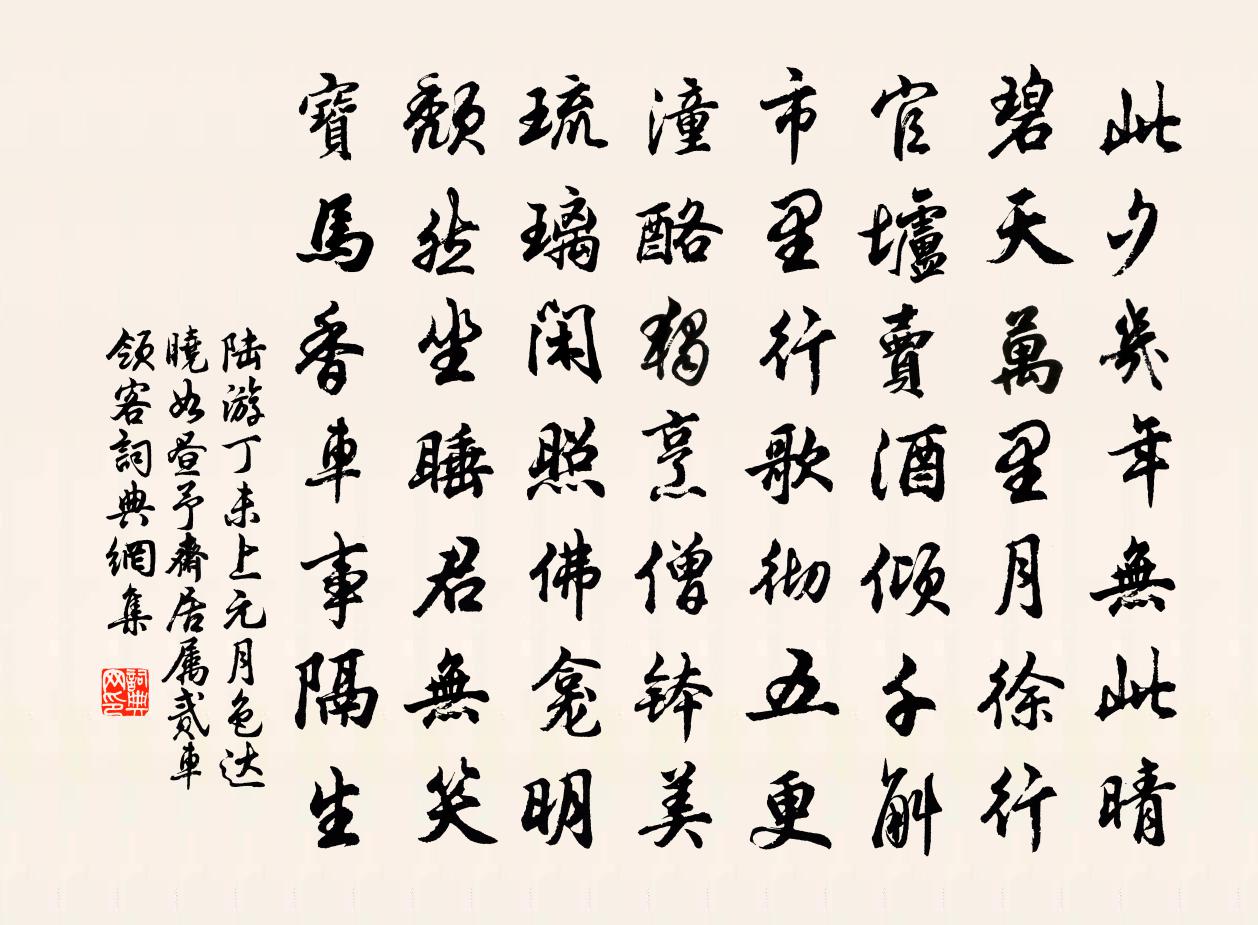 此夕幾年無此晴
碧天萬里月徐行
官壚賣酒傾千斛
市里行歌彻五更
潼酪獨烹僧钵美
琉璃閑照佛龛明
颓然坐睡君無笑
寶馬香車事隔生
陆游丁未上元月色达
曉如昼予齋居属贰車
领客詞典網集
詞典网印